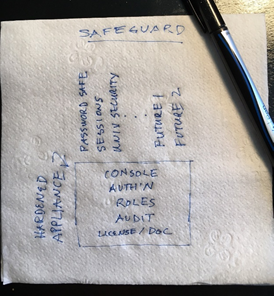 SAFEGUARD
PASSWORD SAFE
SESSIONS
UNIX SECURITY
. . .
FUTURE 1
FUTURE 2
HARDENED
APPLIANCE
CONSOLE
AUTH'N
ROLES
AUDIT
LICENSE/DOC